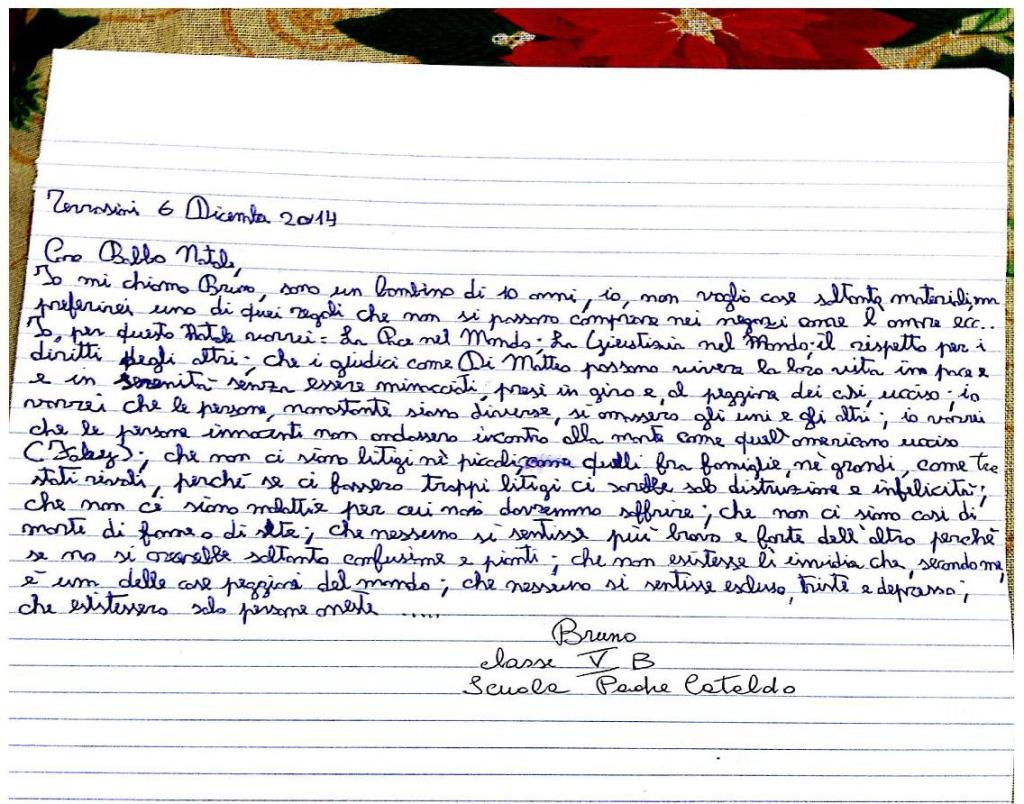 Terrasini 6 Dicembre 2014
Caro Babbo Natale,
Io mi chiamo Bruno, sono un bambino di 10 anni, io, non voglio cose soltanto materiali, ma
preferirei uno di quei regali che non si possono comprare nei negozi come l'amore ecc..
Io, per questo Natale vorrei: La Pace nel Mondo; La Giustizia nel Mondo; il rispetto per i
diritti degli altri; che i giudici come Di Matteo possano vivere la loro vita in pace e
e in serenità senza essere minacciati, presi in giro e, al peggiore dei casi, ucciso; io
vorrei che le persone, nonostante siano diverse, si amassero gli uni e gli altri; io vorrei
che le persone innocenti non andassero incontro alla morte come quell'americano ucciso
(Foley); che non ci siano litigi nè piccoli, come quelli fra famiglie, nè grandi, come tra
stati rivali, perché se ci fossero troppi litigi ci sarebbe solo distruzione e infelicità;
che non cè siano malattie per cui noi dovremmo soffrire; che non ci siano casi di
morte di fame o di sete; che nessuno si sentisse più bravo e forte dell'altro perchè
se no si creerebbe soltanto confusione e pianti; che non esistesse l'invidia che, secondo me,
è una delle cose peggiori del mondo; che nessuno si sentisse escluso, triste e depresso;
che esistessero solo persone oneste .....
Bruno
classe V B
Scuola Padre Cataldo